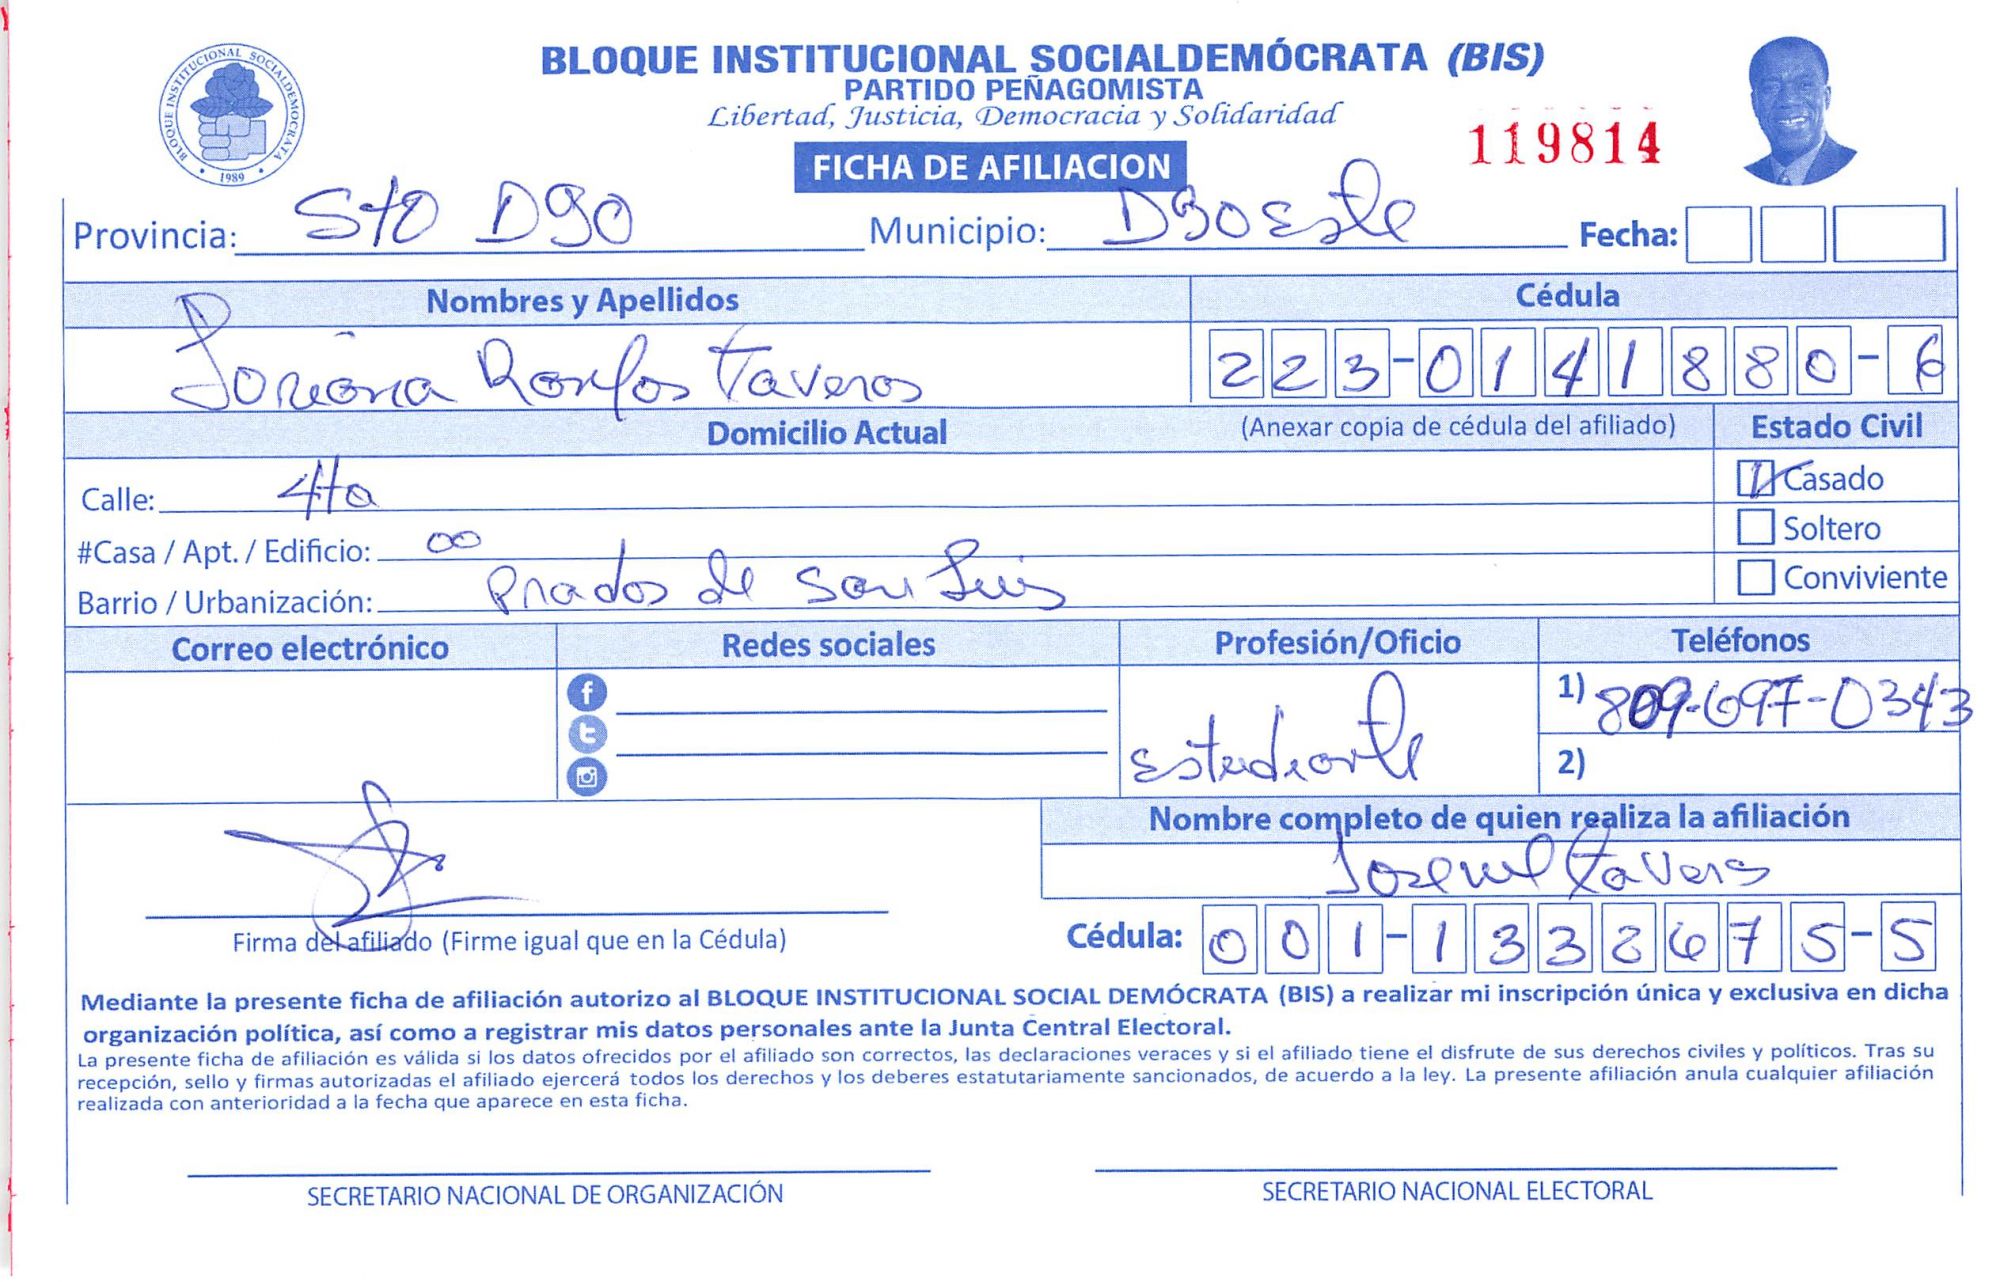 BLOQUE INSTITUCIONAL SOCIALDEMÓCRATA (BIS)
PARTIDO PEÑAGOMISTA
Libertad, Justicia, Democracia y Solidaridad
BLOQUE INSTITUCIONAL SOCIALDEMOCRATA
1989
119814
FICHA DE AFILIACION
Provincia: Sto Dgo Municipio: Dgo Este Fecha:
Nombres y Apellidos Cédula
Taveras 223-0141880-6
Domicilio Actual (Anexar copia de cédula del afiliado) Estado Civil
Calle: 4ta Casado
#Casa / Apt. / Edificio: 00 Soltero
Barrio / Urbanización: Prados de San Luis Conviviente
Correo electrónico Redes sociales Profesión/Oficio Teléfonos
Estudiante 1) 809-697-0343
2)
Nombre completo de quien realiza la afiliación
Tavera
Firma del afiliado (Firme igual que en la Cédula) Cédula: 001-1332675-5
Mediante la presente ficha de afiliación autorizo al BLOQUE INSTITUCIONAL SOCIAL DEMÓCRATA (BIS) a realizar mi inscripción única y exclusiva en dicha
organización política, así como a registrar mis datos personales ante la Junta Central Electoral.
La presente ficha de afiliación es válida si los datos ofrecidos por el afiliado son correctos, las declaraciones veraces y si el afiliado tiene el disfrute de sus derechos civiles y políticos. Tras su
recepción, sello y firmas autorizadas el afiliado ejercerá todos los derechos y los deberes estatutariamente sancionados, de acuerdo a la ley. La presente afiliación anula cualquier afiliación
realizada con anterioridad a la fecha que aparece en esta ficha.
SECRETARIO NACIONAL DE ORGANIZACIÓN SECRETARIO NACIONAL ELECTORAL